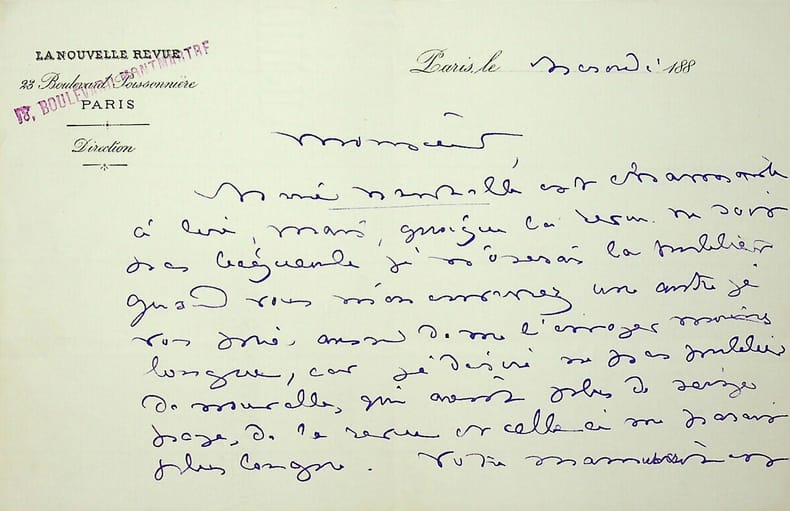 LA NOUVELLE REVUE
23 Boulevard Poissonnière
BOULEVARD MONTMARTRE
PARIS
Direction
Paris, le 188
Monsieur
est charmante
à lire, mais, quoique la revue ne soit
pas bégueule je n'oserais la publier
quand vous m'en enverrez une autre je
vous prie, aussi de me l'envoyer moins
longue, car je désire ne pas publier
de nouvelle, qui aurait plus de seize
page, de la revue et celle ci me parait
plus longue. Votre manuscrit est